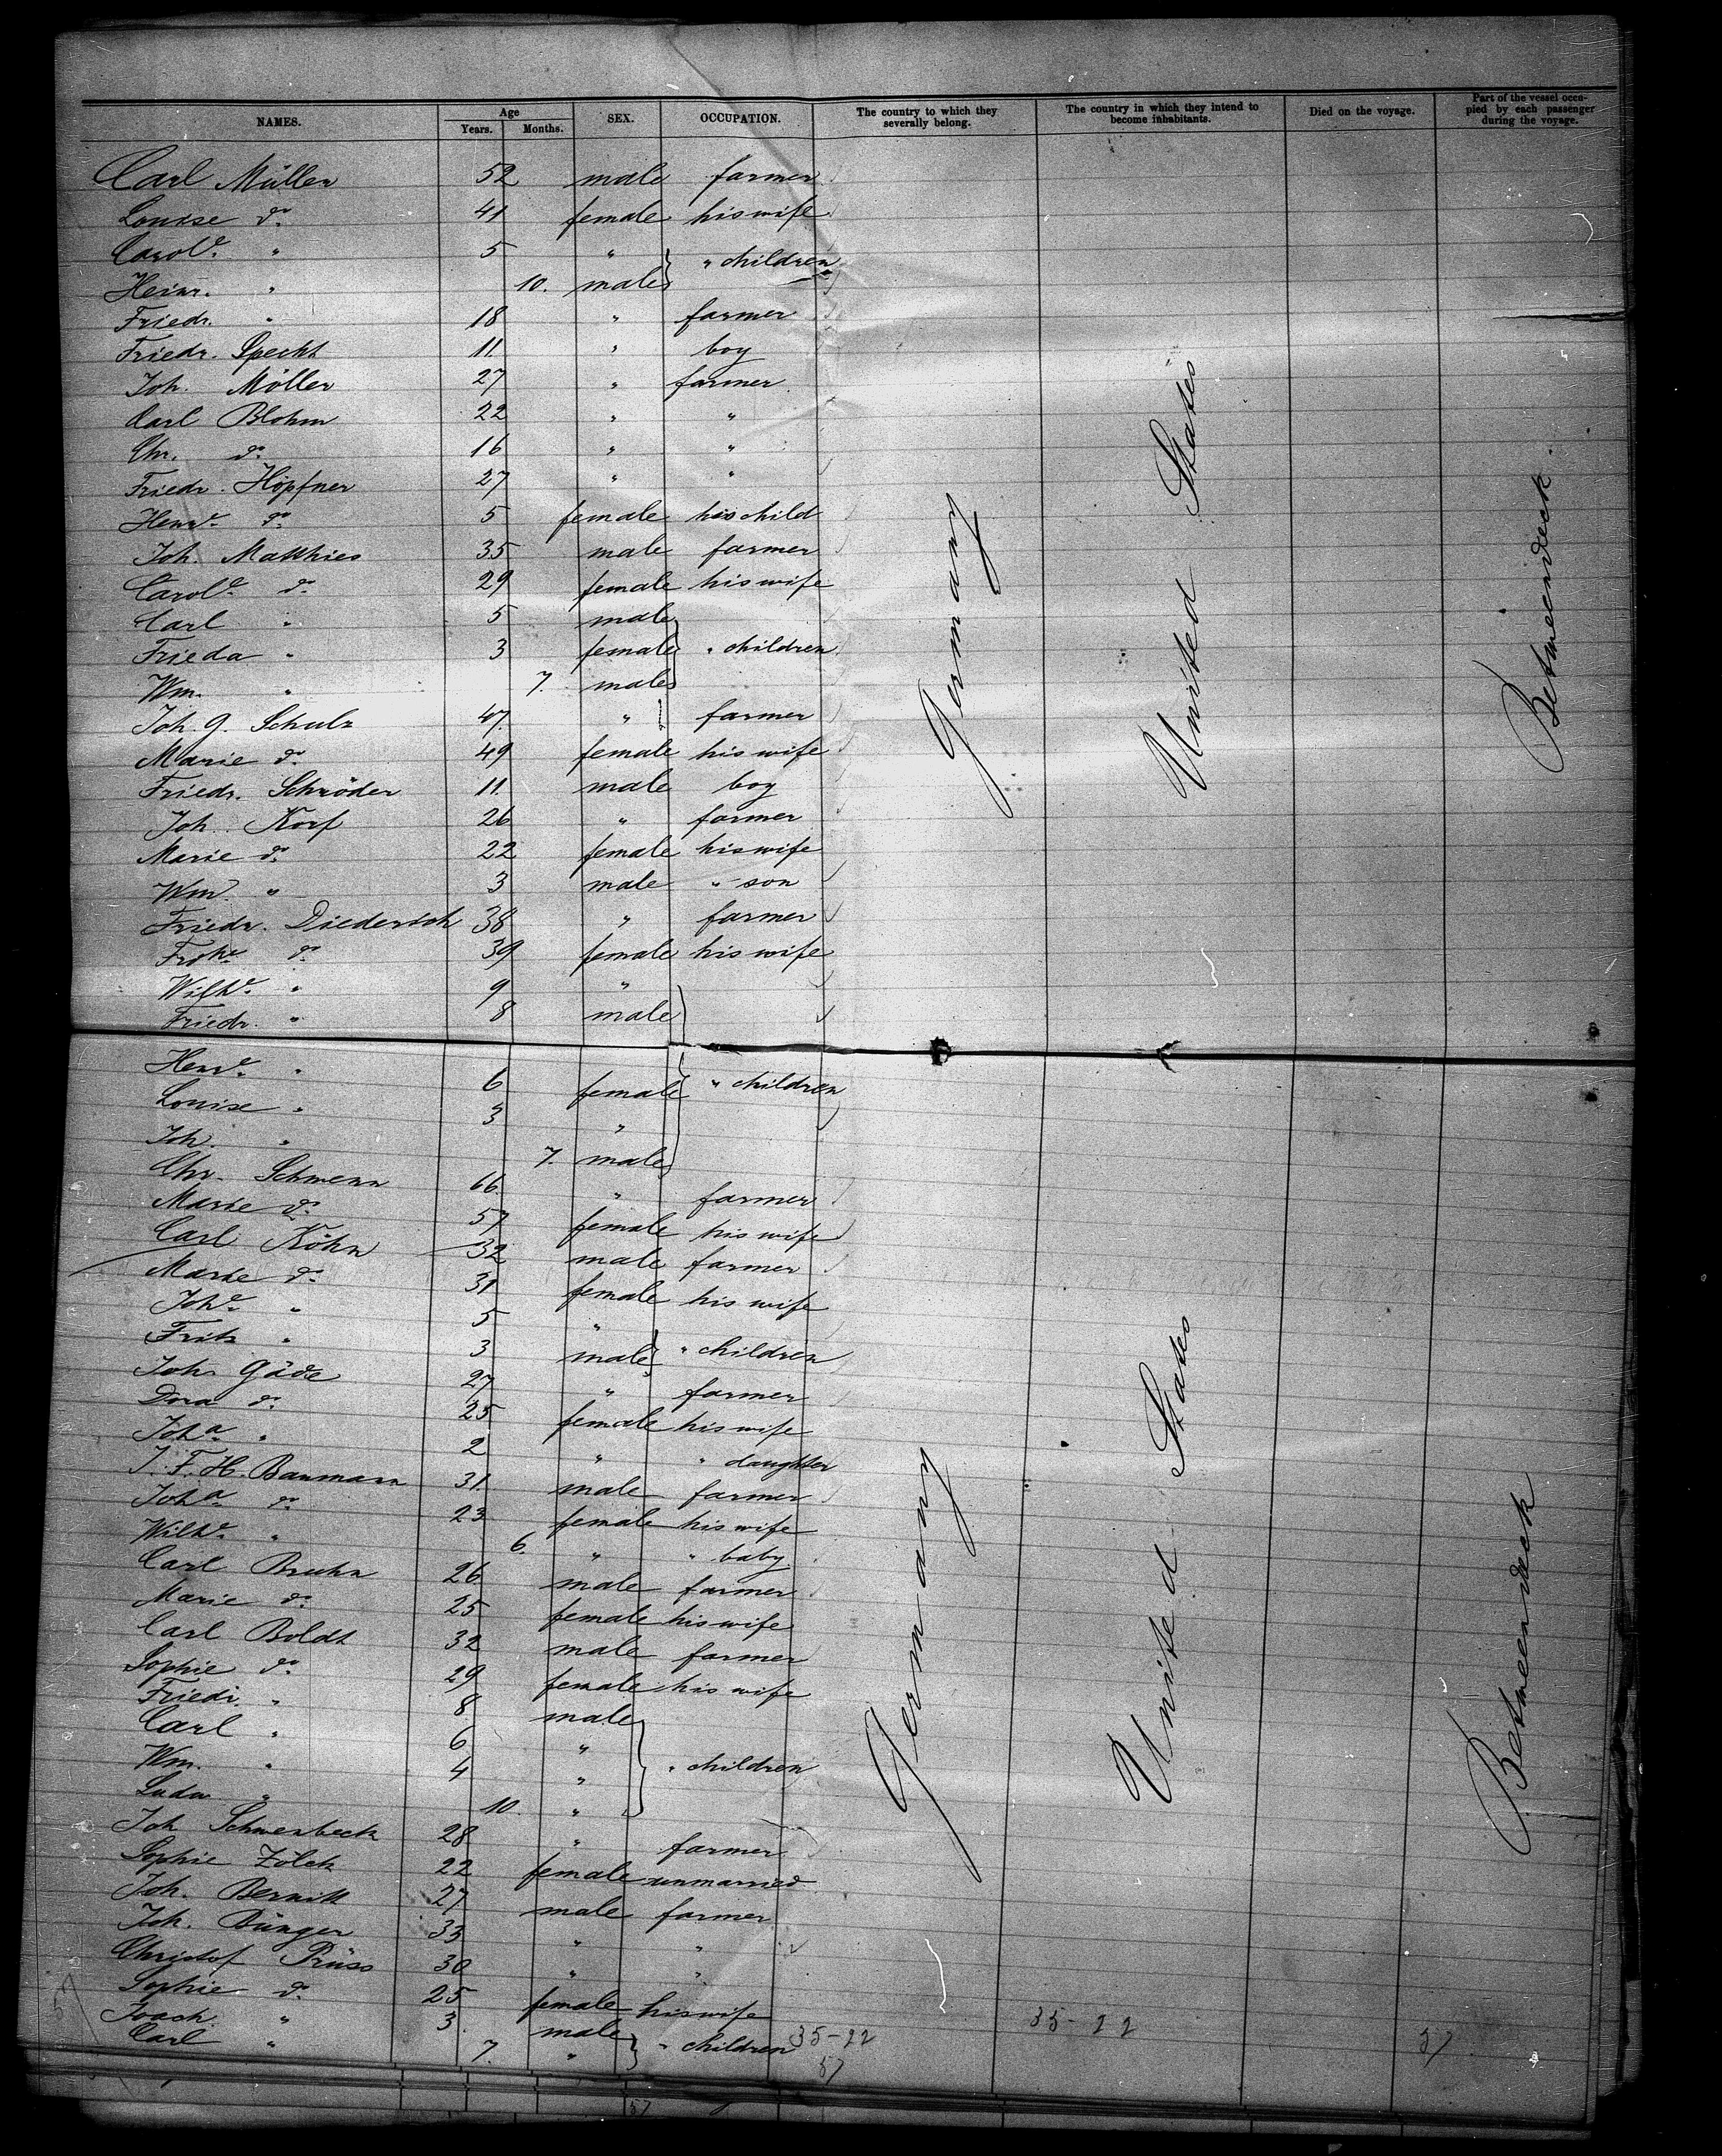 NAMES. Age Years. Months. SEX. OCCUPATION. The country to which they severally belong. The country in which they intend to become inhabitants. Died on the voyage. Part of the vessel occupied by each passenger during the voyage.
Carl Müller 52 male farmer
Louise do 41 female his wife
Carole " 5 " " children
Heinr. " 10. male
Friedr. " 18 " farmer
Friedr. Specht 11 " boy
Joh. Möller 27 " farmer
Carl Blohm 22 " "
Chr. do 16 " "
Friedr. Höpfner 27 " "
Henre do 5 female his child
Joh. Matthies 35 male farmer
Carole do 29 female his wife
Carl " 5 male
Frieda " 3 female " children
Wm. " 7. male
Joh. G. Schulz 47 " farmer
Marie do 49 female his wife
Friedr. Schröder 11 male boy
Joh. Korf 26 " farmer
Marie do 22 female his wife
Wm. " 3 male " son
Friedr. Diederich 38 " farmer
do 39 female his wife
Wilhe " 9 "
Friedr. " 8 male
Henre " 6 female " children
Louise " 3 "
Joh. " 7. male
Chr. Schwenn 66 " farmer
Marie do 57 female his wife
Carl Köhn 32 male farmer
Marie do 31 female his wife
Johe " 5 "
Fritz " 3 male " children
Joh. Gäde 27 " farmer
Dora do 25 female his wife
Joha " 2 " " daughter
J. F. H. Baumann 31 male farmer
Joha do 23 female his wife
Wilhe " 6. " " baby
Carl Bruhn 26 male farmer
Marie do 25 female his wife
Carl Boldt 32 male farmer
Sophie do 29 female his wife
Friedr. " 8 male
Carl " 6 "
Wm. " 4 " " children
" 10. "
Joh Schwerbeck 28 " farmer
Sophie Zölck 22 female unmarried
Joh. 27 male farmer
Joh. Bünger 33 " "
Christof Prüss 30 " "
Sophie do 25 female his wife
Joach. " 3 male
Carl " 7. " " children
Germany
United States
Betweendeck.
Germany
United States
Betweendeck
35-22
57
35-22
57
57
57